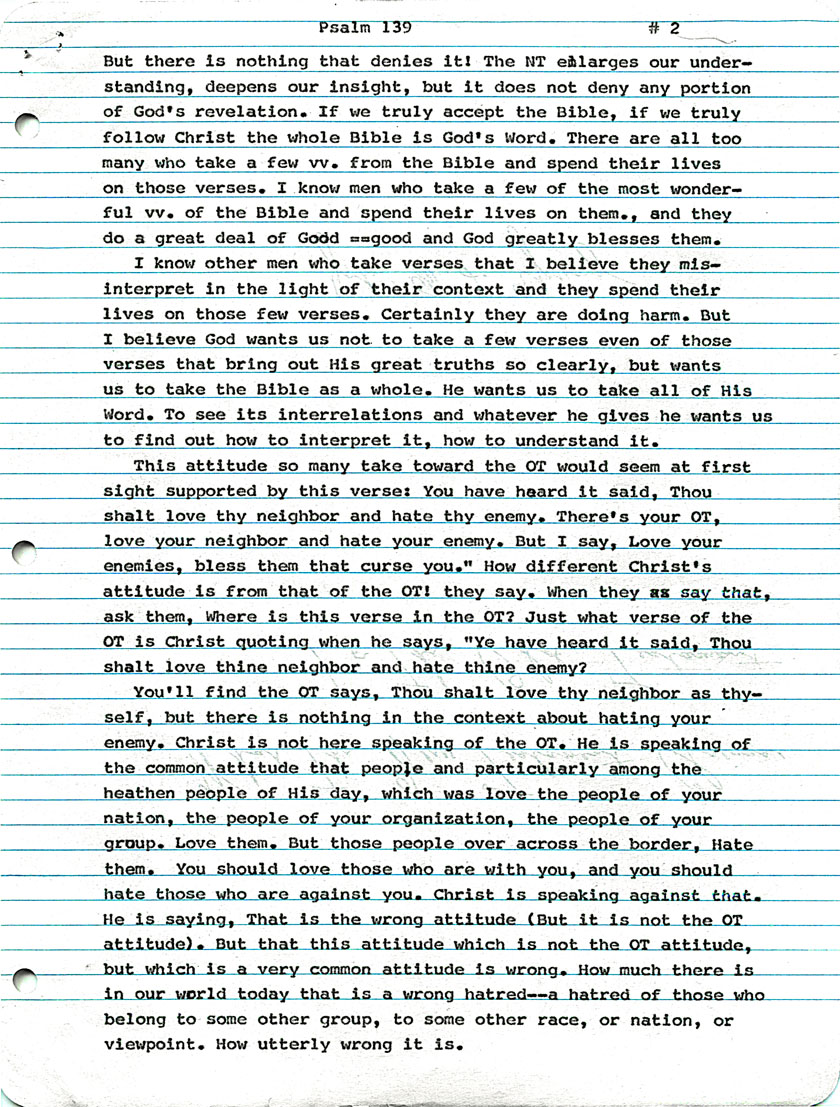 Psalm 139 # 2
But there is nothing that denies it! The NT enlarges our under-
standing, deepens our insight, but it does not deny any portion
of God's revelation. If we truly accept the Bible, if we truly
follow Christ the whole Bible is God's Word. There are all too
many who take a few vv. from the Bible and spend their lives
on those verses. I know men who take a few of the most wonder-
ful vv. of the Bible and spend their lives on them., and they
do a great deal of Godd ==good and God greatly blesses them.
I know other men who take verses that I believe they mis-
interpret in the light of their context and they spend their
lives on those few verses. Certainly they are doing harm. But
I believe God wants us not to take a few verses even of those
verses that bring out His great truths so clearly, but wants
us to take the Bible as a whole. He wants us to take all of His
Word. To see its interrelations and whatever he gives he wants us
to find out how to interpret it, how to understand it.
This attitude so many take toward the OT would seem at first
sight supported by this verse: You have heard it said, Thou
shalt love thy neighbor and hate thy enemy. There's your OT,
love your neighbor and hate your enemy. But I say, Love your
enemies, bless them that curse you." How different Christ's
attitude is from that of the OT! they say. When they as say that,
ask them, Where is this verse in the OT? Just what verse of the
OT is Christ quoting when he says, "Ye have heard it said, Thou
shalt love thine neighbor and hate thine enemy?
You'll find the OT says, Thou shalt love thy neighbor as thy-
self, but there is nothing in the context about hating your
enemy. Christ is not here speaking of the OT. He is speaking of
the common attitude that people and particularly among the
heathen people of His day, which was love the people of your
nation, the people of your organization, the people of your
group. Love them. But those people over across the border, Hate
them. You should love those who are with you, and you should
hate those who are against you. Christ is speaking against that.
He is saying, That is the wrong attitude (But it is not the OT
attitude). But that this attitude which is not the OT attitude,
but which is a very common attitude is wrong. How much there is
in our world today that is a wrong hatred--a hatred of those who
belong to some other group, to some other race, or nation, or
viewpoint. How utterly wrong it is.